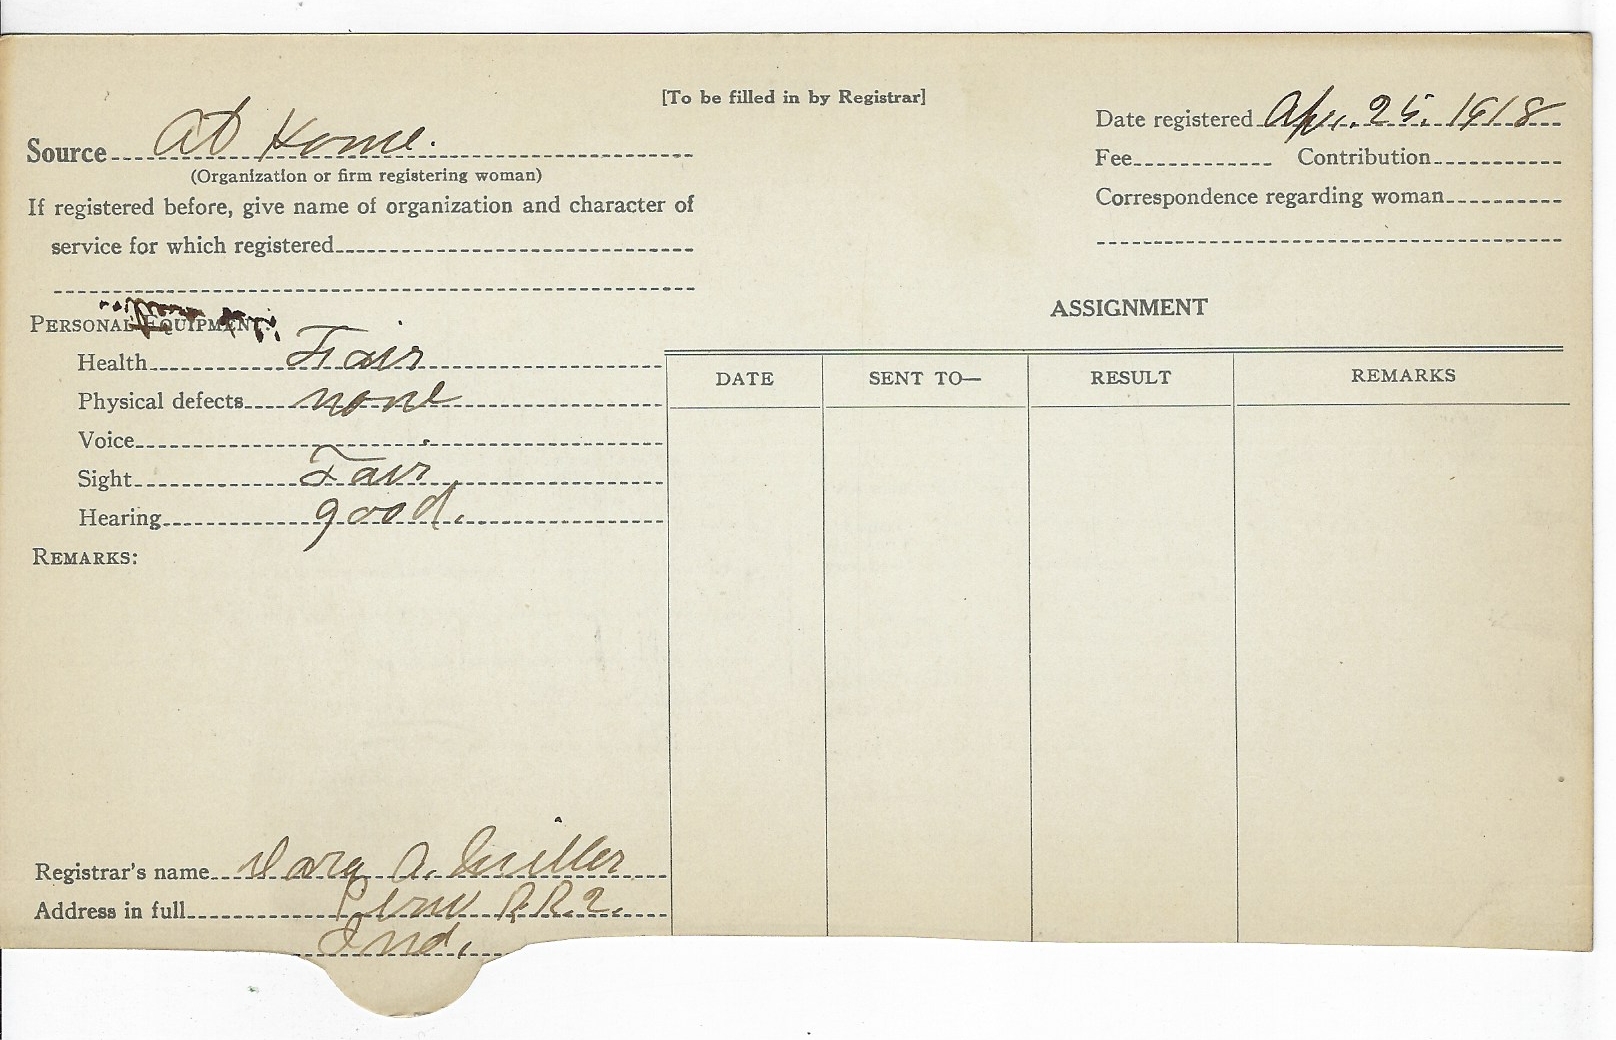 [To be filled in by Registrar]
Source At Home.
(Organization or firm registering woman)
If registered before, give name of organization and character of
service for which registered
Date registered Apr. 25. 1918
Fee Contribution
Correspondence regarding woman
PERSONAL EQUIPMENT:
Health Fair
Physical defects none
Voice
Sight Fair
Hearing good.
REMARKS:
ASSIGNMENT
DATE SENT TO— RESULT REMARKS
Registrar's name A. Miller
Address in full Peru R.R.2.
Ind.